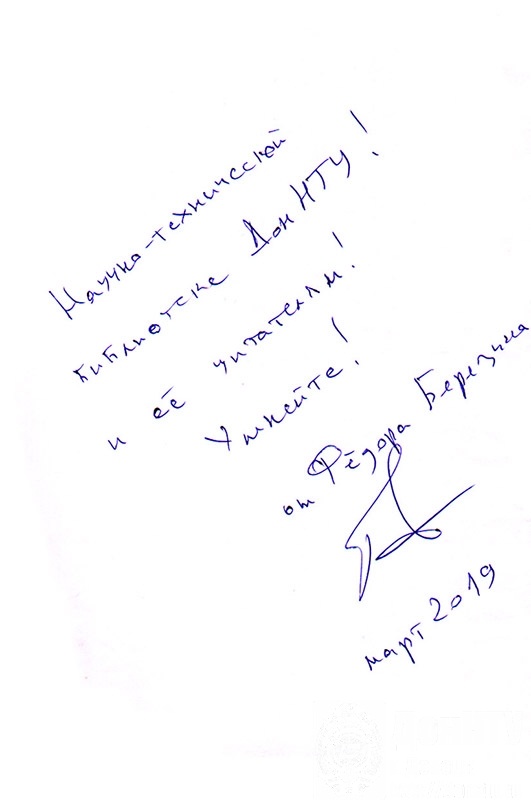 Научно-технической
библиотеке ДонНТУ!
и её читателям!
Умнейте!
от Фёдора Березина
март 2019